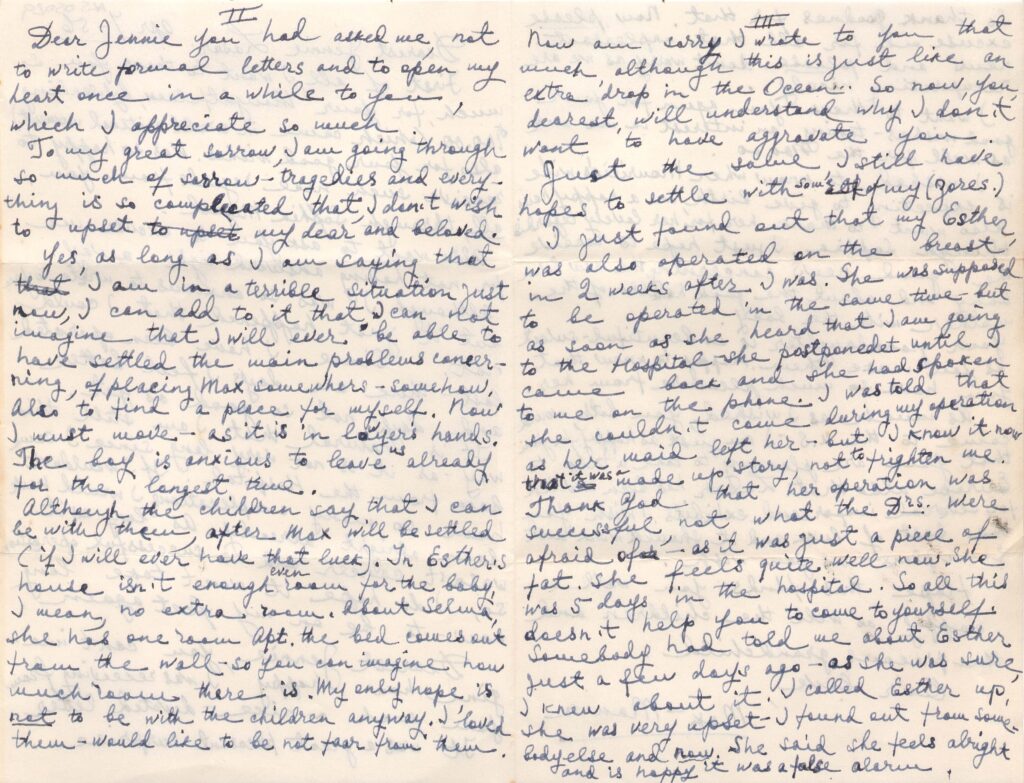 II
Dear Jennie you had asked me, not
to write formal letters and to open my
heart once in a while to you,
which I appreciate so much.
To my great sorrow, I am going through
so much of sorrow - tragedies and every-
thing is so complicated that, I don't wish
to upset to upset my dear and beloved.
Yes, as long as I am saying that
that I am in a terrible situation just
now, I can add to it that I can not
imagine that I will ever be able to
have settled the main problems concer-
ning, of placing Max somewhers - somehow.
Also to find a place for myself. Now
I must move - as it is in loyers hands.
The boy is anxious to leave us already
for the longest time.
Although the children say that I can
be with them, after Max will be settled
(if I will ever have that luck). In Esther's
house isn't enough even room for the baby,
I mean, no extra room. About Selma,
she has one room Apt. the bed comes out
from the wall - so you can imagine how
much room there is. My only hope is
not to be with the children anyway. I loved
them - would like to be not far from them.
III
Now am sorry I wrote to you that
much, although this is just like an
extra drop in the Ocean... So now, you,
dearest, will understand why I don't
want to have aggrovate you
Just the same I still have
hopes to settle with some of my (zores.)
I just found out that my Esther,
was also operated on the breast
in 2 weeks after I was. She was supposed
to be operated in the same time - but
as soon as she heard that I am going
to the Hospital - she postponed it until I
came back and she had spoken
to me on the phone. I was told that
she couldn't come during my operation
as her maid left her - but I know it now
that it was made up story, not to frighten me.
Thank God that her operation was
successful, not what the Drs. were
afraid of - as it was just a piece of
fat. She feels quite well now. She
was 5 days in the hospital. So all this
doesn't help you to come to yourself.
Somebody had told me about Esther
just a few days ago - as she was sure,
I knew about it. I called Esther up,
she was very upset - I found out from some-
body else and now. She said she feels alright
and is happy it was a false alarm.